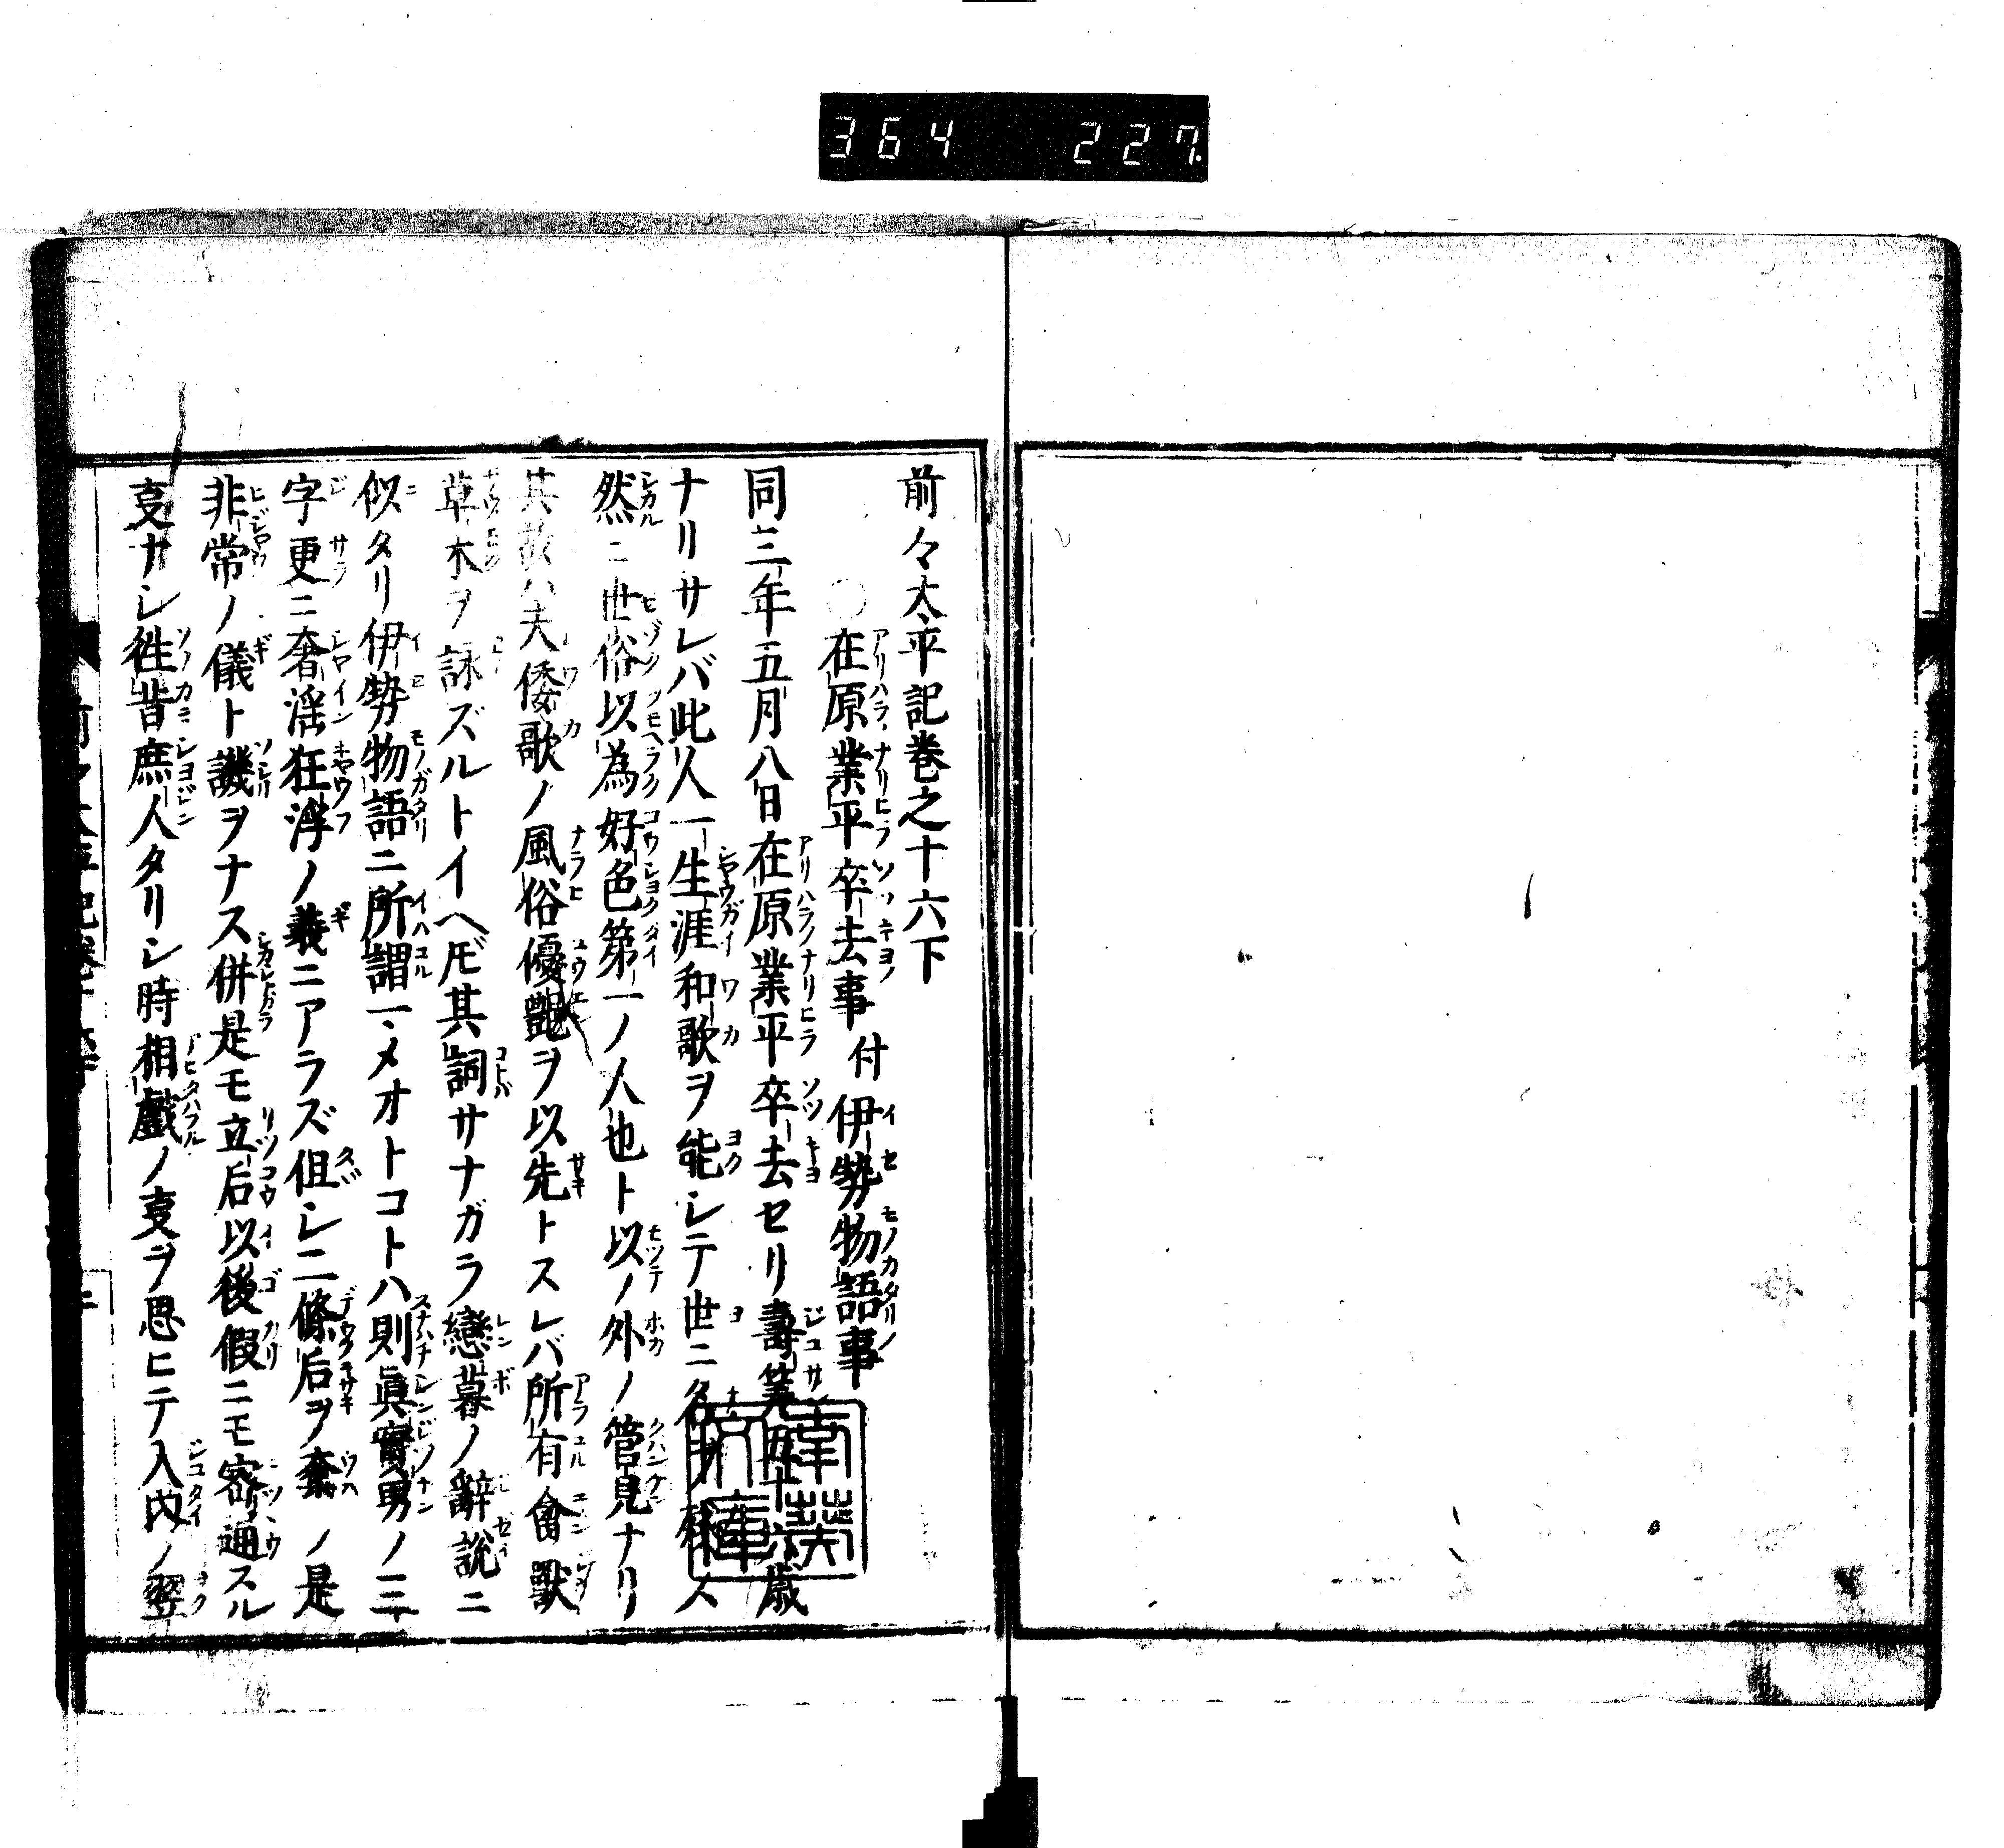 364 227
前々太平記巻之十六下
○在原業平卒去事 付 伊勢物語事
同三年五月八日在原業平卒去セリ壽筭五十六歳
ナリサレバ此人一生涯和歌ヲ能シテ世ニ名ヲ
然ニ世俗以為好色第一ノ人也ト以ノ外ノ管見ナリ
其故ハ夫倭歌ノ風俗優艶ヲ以先トスレバ所有禽獸
草木ヲ詠ズルトイヘ𪜈其詞サナガラ戀暮ノ辭説ニ
似タリ伊勢物語ニ所謂マメオトコトハ則眞實男ノ三
字更ニ奢滛狂浮ノ義ニアラズ但シ二條后ヲ奪ノ是
非常ノ儀ト譏ヲナス併是モ立后以後假ニモ密通スル
㕝ナシ徃昔庶人タリシ時相戯ノ㕝ヲ思ヒテ入内ノ翌